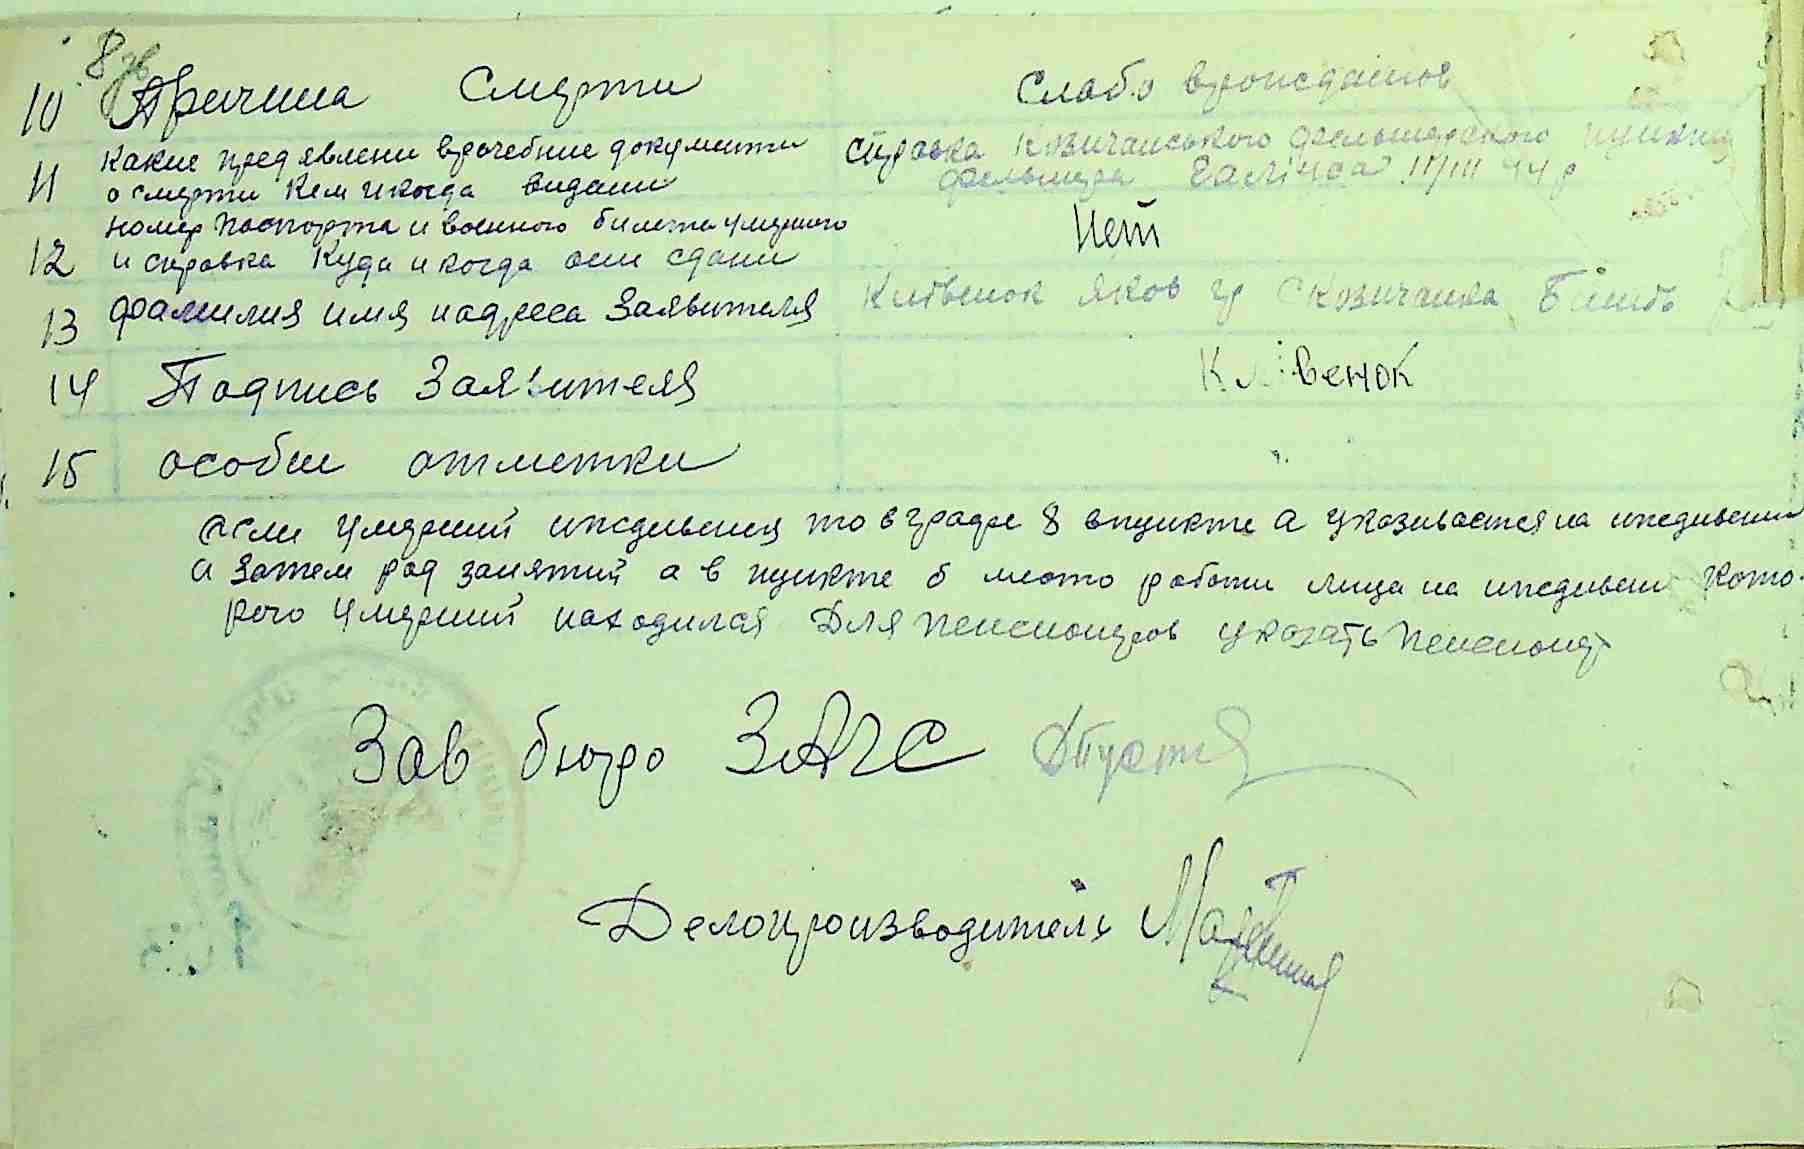 8 зв
10 Причина Смерти Слабо врождѣнов
11 Какие предявлени врочебние документи справка Козичанського фельшерского пункту
о смерти Кем и когда видани фельшера 11/III 44 р
номер паспорта и военного билета умершого Нет
12 и справка Куда и когда они сдани
13 фамилия имя и адреса Заявителя Яков Козичанка
14 Подпись Заявителя Клівенок
15 особие отметки "
если умерший иждивенец то в графе 8 в пункте а указивается на иждивении
а затем род занятий а в пункте б место роботи лица на иждивении кото-
рого умерший находился Для пенсионеров указать пенсионер
Зав бюро ЗАГС
Делопроизводитель